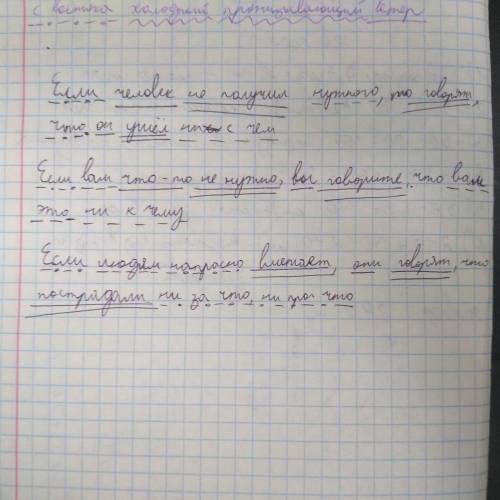 с востока холодный пронизывающий ветер
Если человек не получил нужного, то говорят,
что он ушёл ни с чем
Если вам что-то не нужно, вы говорите, что вам
это ни к чему
Если людям напрасно влетает, они говорят, что
пострадали ни за что, ни про что